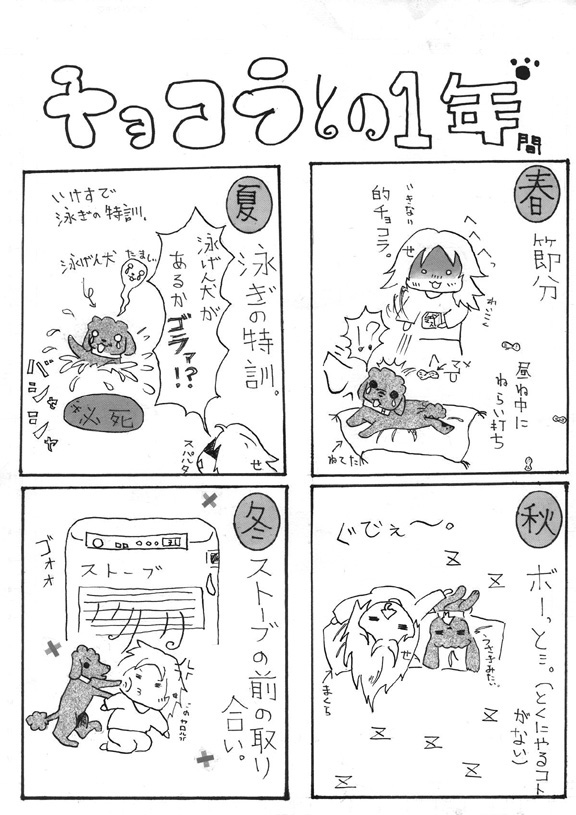 チョコラとの1年間
春
節分
へへへっ
いきない
的チョコラ。
せ
わくわく
!?
昼ね中に
ねらい打ち
ねてた
夏
泳ぎの特訓。
いけすで
泳ぎの特訓。
泳げん犬
たましい
泳げん犬が
あるか
ゴラァ!?
バシャバシャ
必死
スパルタ
せ
秋
ボーっと…。(とくにやるコト
がない)
ぐでぇ〜。
Z
Z
Z
せ
うさ子みたい。
まくら
Z
Z
Z
Z
Z
冬
ストーブの前の取り
合い。
ゴォォ
ストーブ